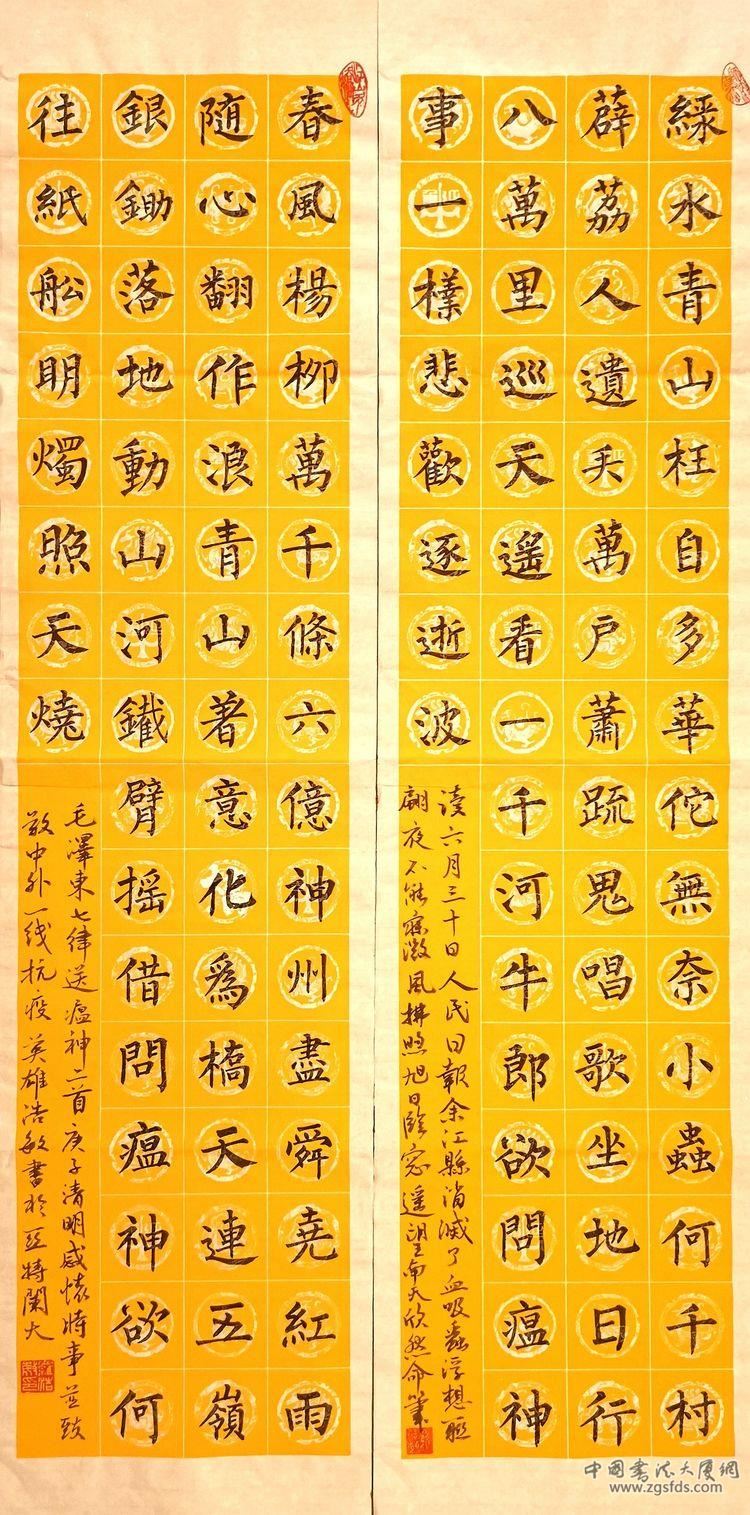 綠水青山枉自多華佗無奈小蟲何千村
薜荔人遺矢萬戶蕭疏鬼唱歌坐地日行
八萬里巡天遙看一千河牛郎欲問瘟神
事一樣悲歡逐逝波
读六月三十日人民日報余江縣消滅了血吸蟲浮想联
翩夜不能寐微風拂煦旭日臨窗遥望南天欣然命筆
春風楊柳萬千條六億神州盡舜堯紅雨
隨心翻作浪青山著意化爲橋天連五嶺
銀鋤落地動山河鐵臂摇借問瘟神欲何
往紙船明燭照天燒
毛澤東七律送瘟神二首庚子清明感懷時事並致
敬中外一线抗疫英雄浩敏書於亚特闌大
中國書法大厦網
www.zgsfds.com